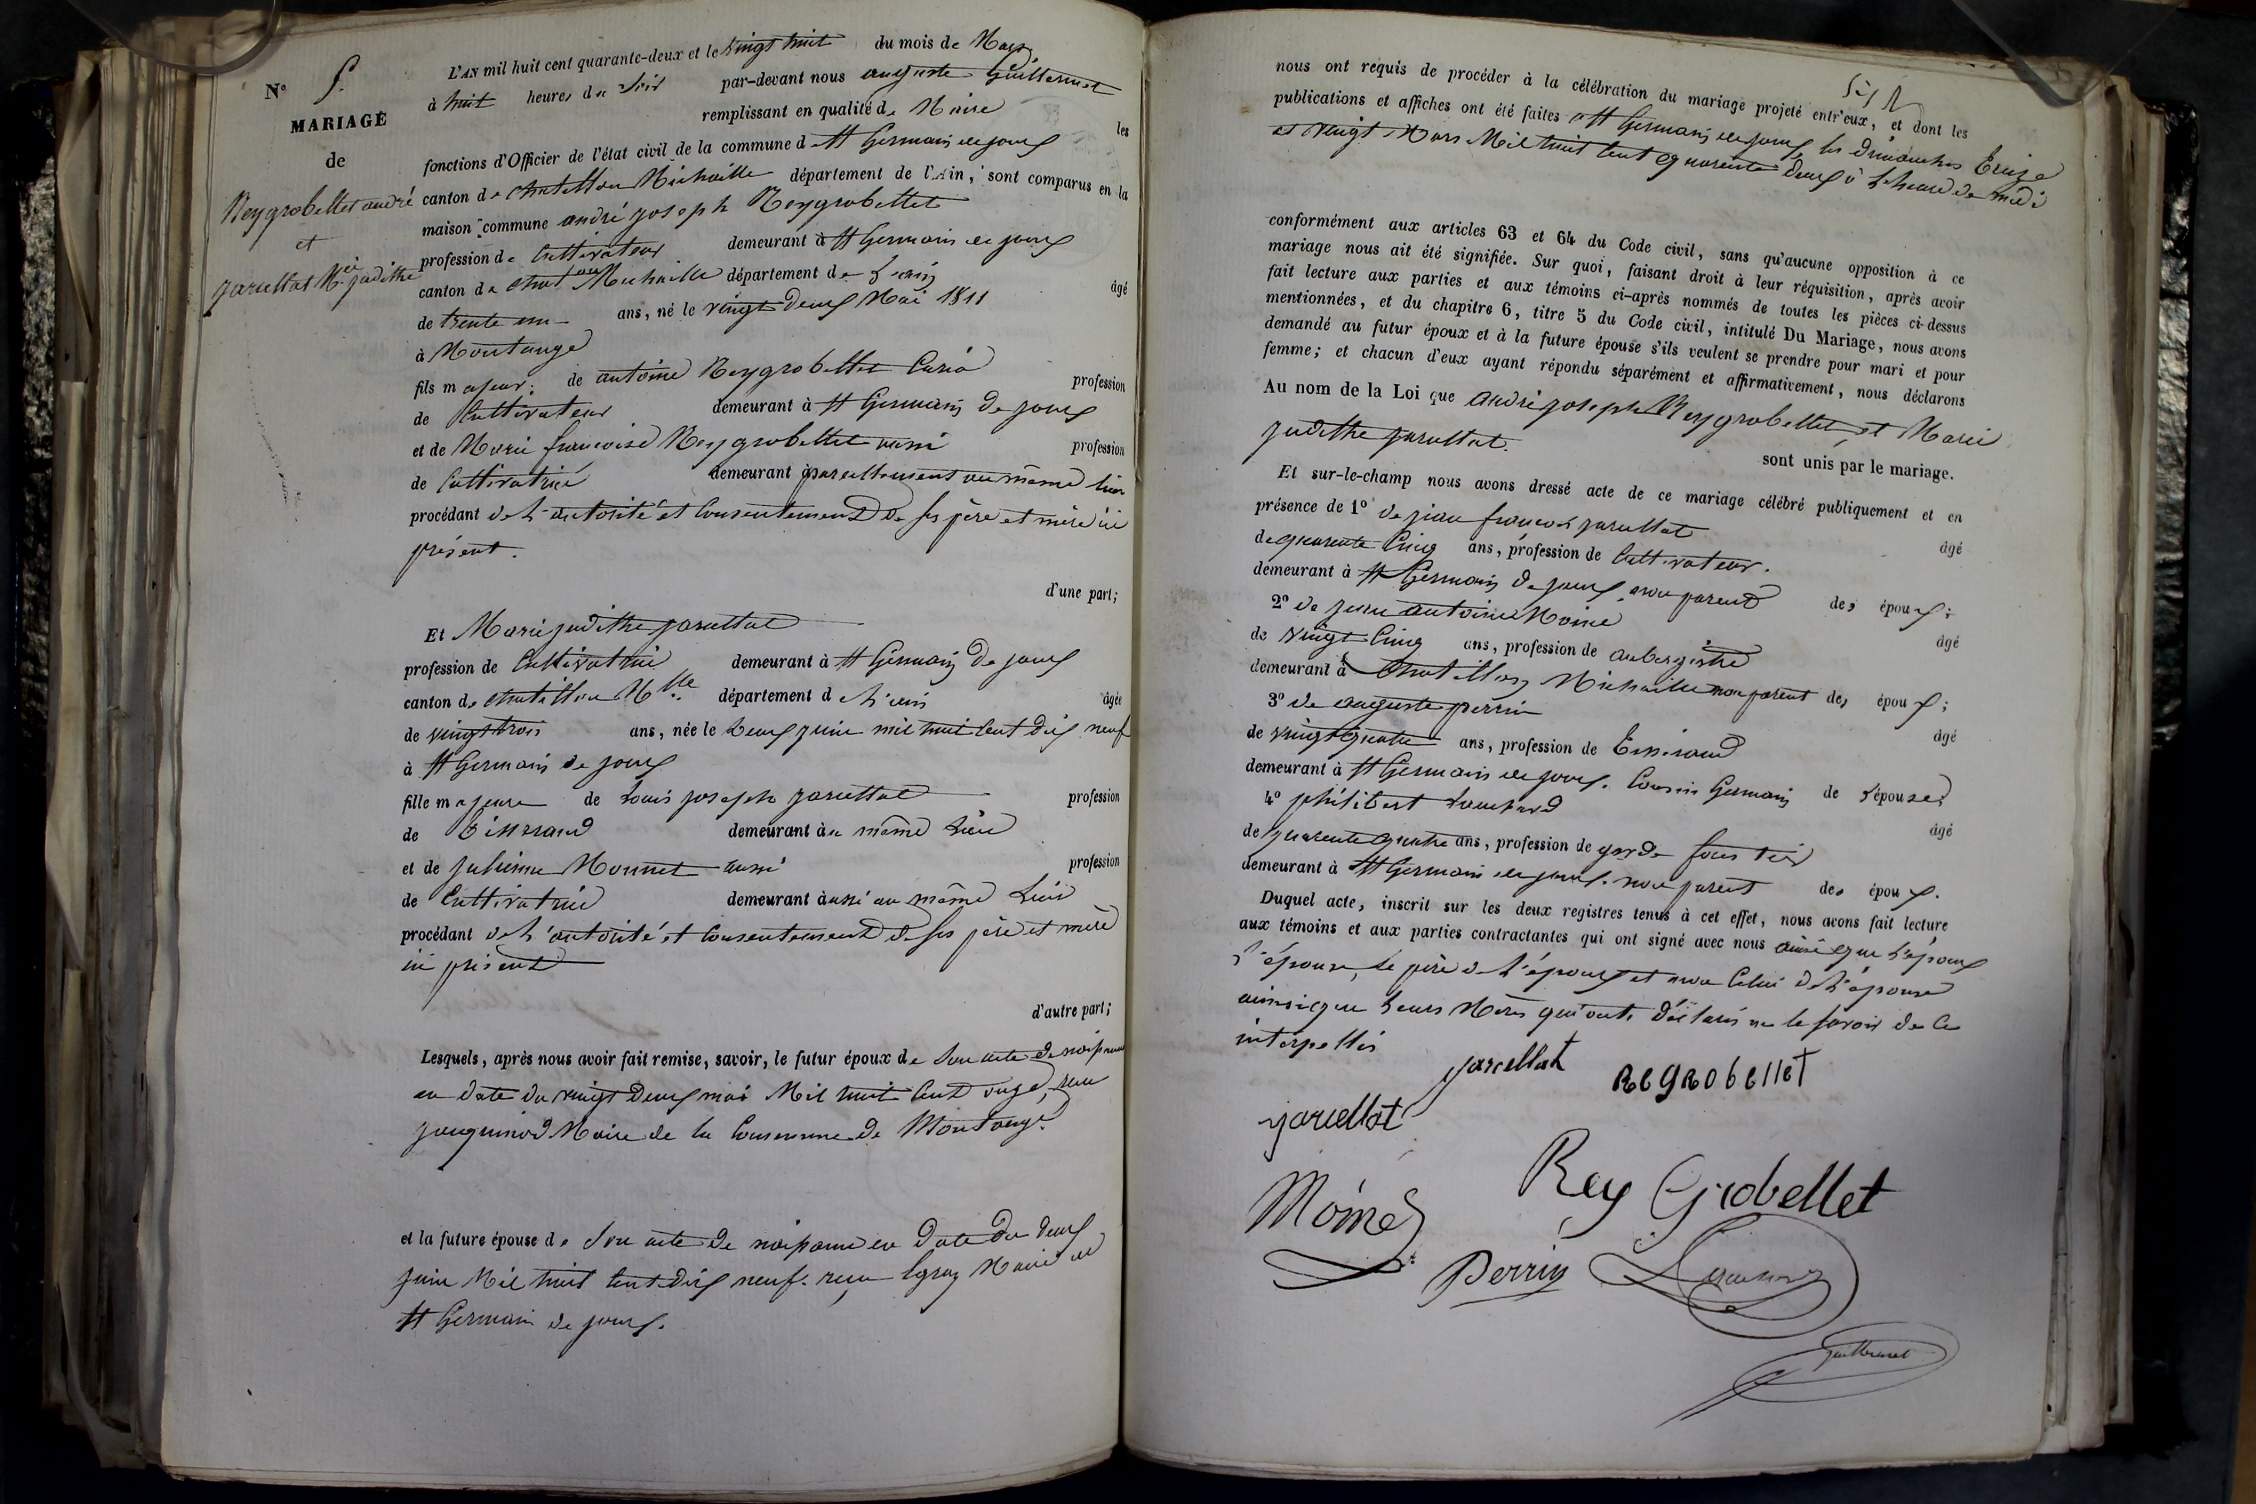 N° 5.
MARIAGE
de
Reygrobellet andré
et
jarcellat M.ie judithe
L'AN mil huit cent quarante-deux et le vingt huit du mois de Mars
à huit heures du soir par-devant nous auguste Guillermet
remplissant en qualité de Maire les
fonctions d'Officier de l'état civil de la commune d St Germain de joux
canton de chatillon Michaille département de l'Ain, sont comparus en la
maison commune andré joseph Reygrobellet
profession de Cultivateur demeurant à St Germain de joux
canton de chat.on Michaille département de L'ain âgé
de trente un ans, né le vingt deux Mai 1811
à Montange
fils majeur de antoine Reygrobellet
profession
de Cultivateur demeurant à St Germain de joux
et de Marie francoise Reygrobellet aussi profession
de Cultivatrice demeurant à pareillement au même lieu
procédant de L'autorité et Consentement de ses père et mère ici
présent.
d'une part;
Et Marie judithe jarcellat
profession de Cultivatrice demeurant à St Germain de joux
canton de chatillon M.lle département d L'ain âgée
de vingt trois ans, née le Deux juin mil huit cent dix neuf
à St Germain de joux
fille majeure de Louis joseph jarcellat profession
de Tisserand demeurant au même Lieu
et de julienne Monnet aussi profession
de Cultivatrice demeurant aussi au même Lieu
procédant de L'autorité et Consentement de ses père et mère
ici présent
d'autre part;
Lesquels, après nous avoir fait remise, savoir, le futur époux de Son acte de naissance
en date du vingt deux mai Mil huit Cent onze, reçu
jacquinod Maire de la Commune de Montange.
et la future épouse de Son acte de naissance en Date du deux
juin Mil huit Cent dix neuf. reçu Maire de
St Germain de joux.
nous ont requis de procéder à la célébration du mariage projeté entr'eux, et dont les
publications et affiches ont été faites à St Germain de joux les dimanches Treize
et vingt Mars Mil huit Cent quarante deux à L'heure de midi
conformément aux articles 63 et 64 du Code civil, sans qu'aucune opposition à ce
mariage nous ait été signifiée. Sur quoi, faisant droit à leur réquisition, après avoir
fait lecture aux parties et aux témoins ci-après nommés de toutes les pièces ci-dessus
mentionnées, et du chapitre 6, titre 5 du Code civil, intitulé Du Mariage, nous avons
demandé au futur époux et à la future épouse s'ils veulent se prendre pour mari et pour
femme; et chacun d'eux ayant répondu séparément et affirmativement, nous déclarons
Au nom de la Loi que andré joseph Reygrobellet et Marie
judithe jarcellat.
sont unis par le mariage.
Et sur-le-champ nous avons dressé acte de ce mariage célébré publiquement et en
présence de 1° de jean francois jarcellat âgé
de quarante Cinq ans, profession de Cultivateur.
demeurant à St Germain de joux non parent des époux;
2° de jean antoine Moine âgé
de vingt Cinq ans, profession de aubergiste
demeurant à Chatillon Michaille non parent des époux;
3° de auguste perrin âgé
de vingt quatre ans, profession de Tisserand
demeurant à St Germain de joux. Cousin Germain de L'épouse;
4° philibert âgé
de quarante quatre ans, profession de garde forestier
demeurant à St Germain de joux. non parent des époux.
Duquel acte, inscrit sur les deux registres tenus à cet effet, nous avons fait lecture
aux témoins et aux parties contractantes qui ont signé avec nous ainsi que L'époux
L'épouse, Le père de L'époux et non Celui de L'épouse
ainsi que Leurs Mères qui ont Déclarés ne le savoir de Ce
interpellés
jarcellat ReGRobelleT
jarcellat
Rey Grobellet
Moine
Perrin
Guillermet